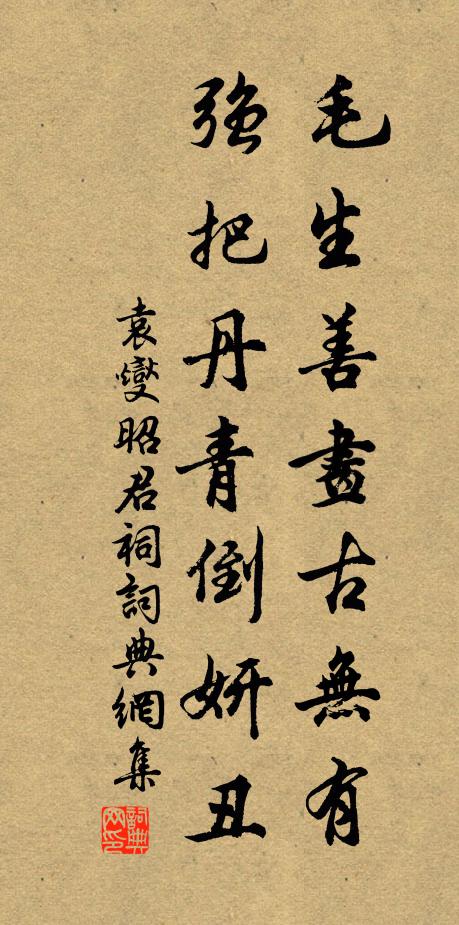 毛生善畫古無有
强把丹青倒妍丑
袁燮昭君祠詞典網集
詞典網印